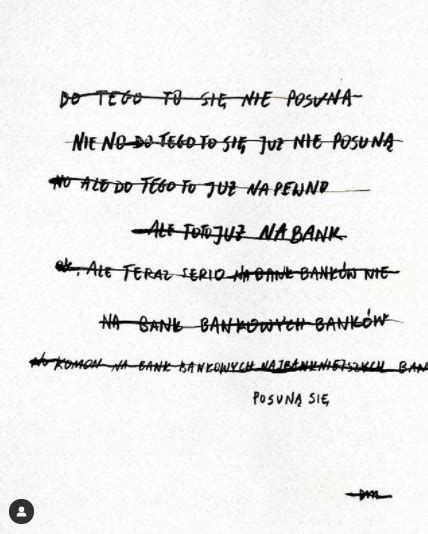 DO TEGO TO SIĘ NIE POSUNĄ
NIE NO DO TEGO TO SIĘ JUŻ NIE POSUNĄ
NO ALE DO TEGO TO JUŻ NA PEWNO
ALE TO TO JUŻ NA BANK
OK, ALE TERAZ SERIO NA BANK BANKÓW NIE
NA BANK BANKOWYCH BANKÓW
NO KOMON NA BANK BANKOWYCH NAJBANKNIEJSZYCH BAN
POSUNĄ SIĘ